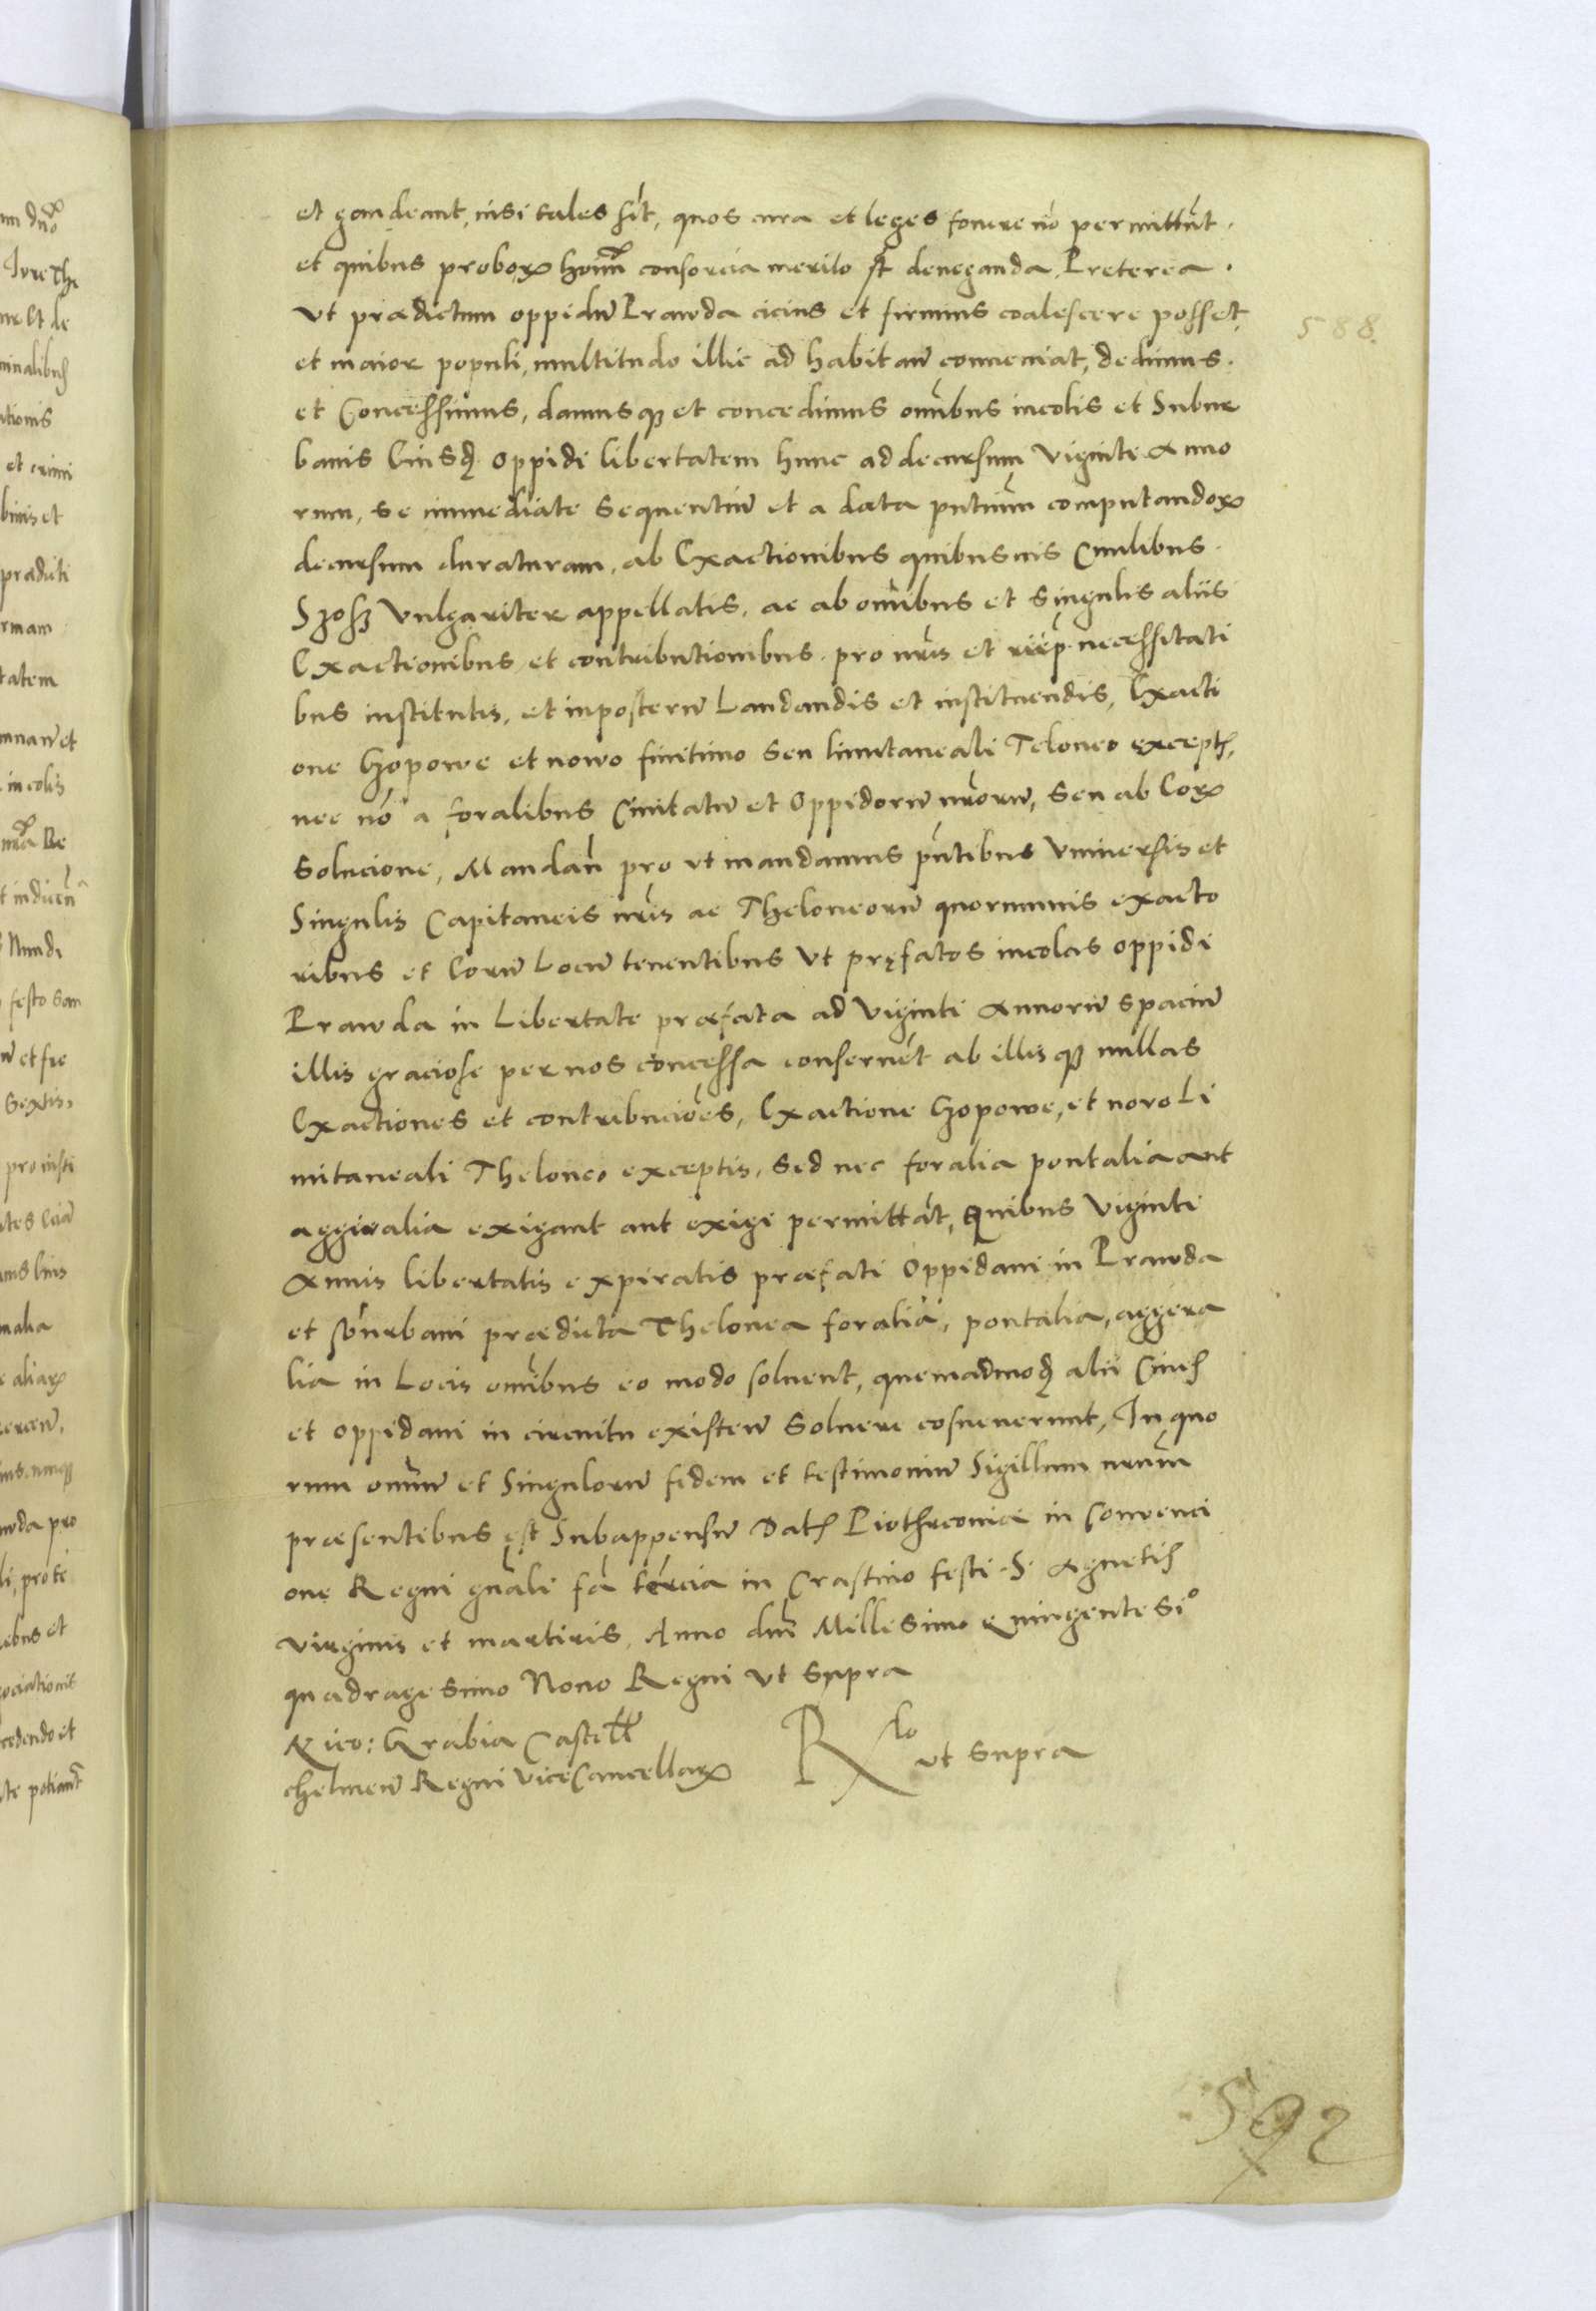 et gaudeant, nisi tales sīt, quos iura et leges fouere nō permittūt.
et quibus proboꝝ hoīm consorcia merito st̄ deneganda. Preterea.
Vt prædictum oppidū Prawda cicius et firmius coalescere posset,
588.
et maior populi, multitudo illic ad habitan̄ conueniat, dedimus.
et Concessimus, damusqꝫ et concedimus omībus incolis et Subur
banis Eiusdꝫ oppidi libertatem hinc ad decursum Viginti Anno
rum, se immediate sequentiū et a data pn̄tium computandoꝝ
decursum duraturam, ab Exactionibus quibusuis Ciuilibus.
Szosz Vulgariter appellatis, ac ab omībus et singulis aliis
Exactionibus et contributionibus. pro nr̄is et reip. necessitati
bus institutis, et inposterū Laudandis et instituendis, Exacti
one Czopowe et nowo finitimo seu limitaneali Teloneo except̄,
nec nō a foralibus Ciuitatū et Oppidorū nr̄orū, seu ab Eoꝝ
Solucione, Mandan̄ pro vt mandamus pn̄tibus Vniuersis et
Singulis Capitaneis nr̄is ac Theloneorū quorumuis exacto
ribus et Eorū Locū tenentibus Vt pręfatos incolas oppidi
Prawda in Libertate præfata ad Viginti Annorū spaciū
illis graciose per nos concessa conseruēt ab illisqꝫ nullas
Exactiones et contribucioēs, Exactione Czopowe, et nouo Li
mitaneali Theloneo exceptis, Sed nec foralia pontalia aut
aggeralia exigant aut exigi permittāt, Quibus Viginti
Annis libertatis expiratis præfati Oppidani in Prawda
et suburbani prædicta Thelonea foralia, pontalia, aggera
lia in Locis omībus eo modo soluent, quemadmodꝫ alii Ciues
et oppidani in circuitu existen̄ Soluere consueuerunt, In quo
rum omīū et Singulorū fidem et testimoniū Sigillum nr̄um
præsentibus est Subappensū Dat̄ Piothrconiæ in Conuenci
one Regni gn̄ali fa tercia in Crastino festi .S. Agnetis
virginis et martiris, Anno dn̄i Millesimo Quingentesīo
quadragesimo Nono Regni Vt Supra
Nico: Grabia Castell̄
chelmen̄ Regni ViceCancellarꝫ
Rlo vt supra
592